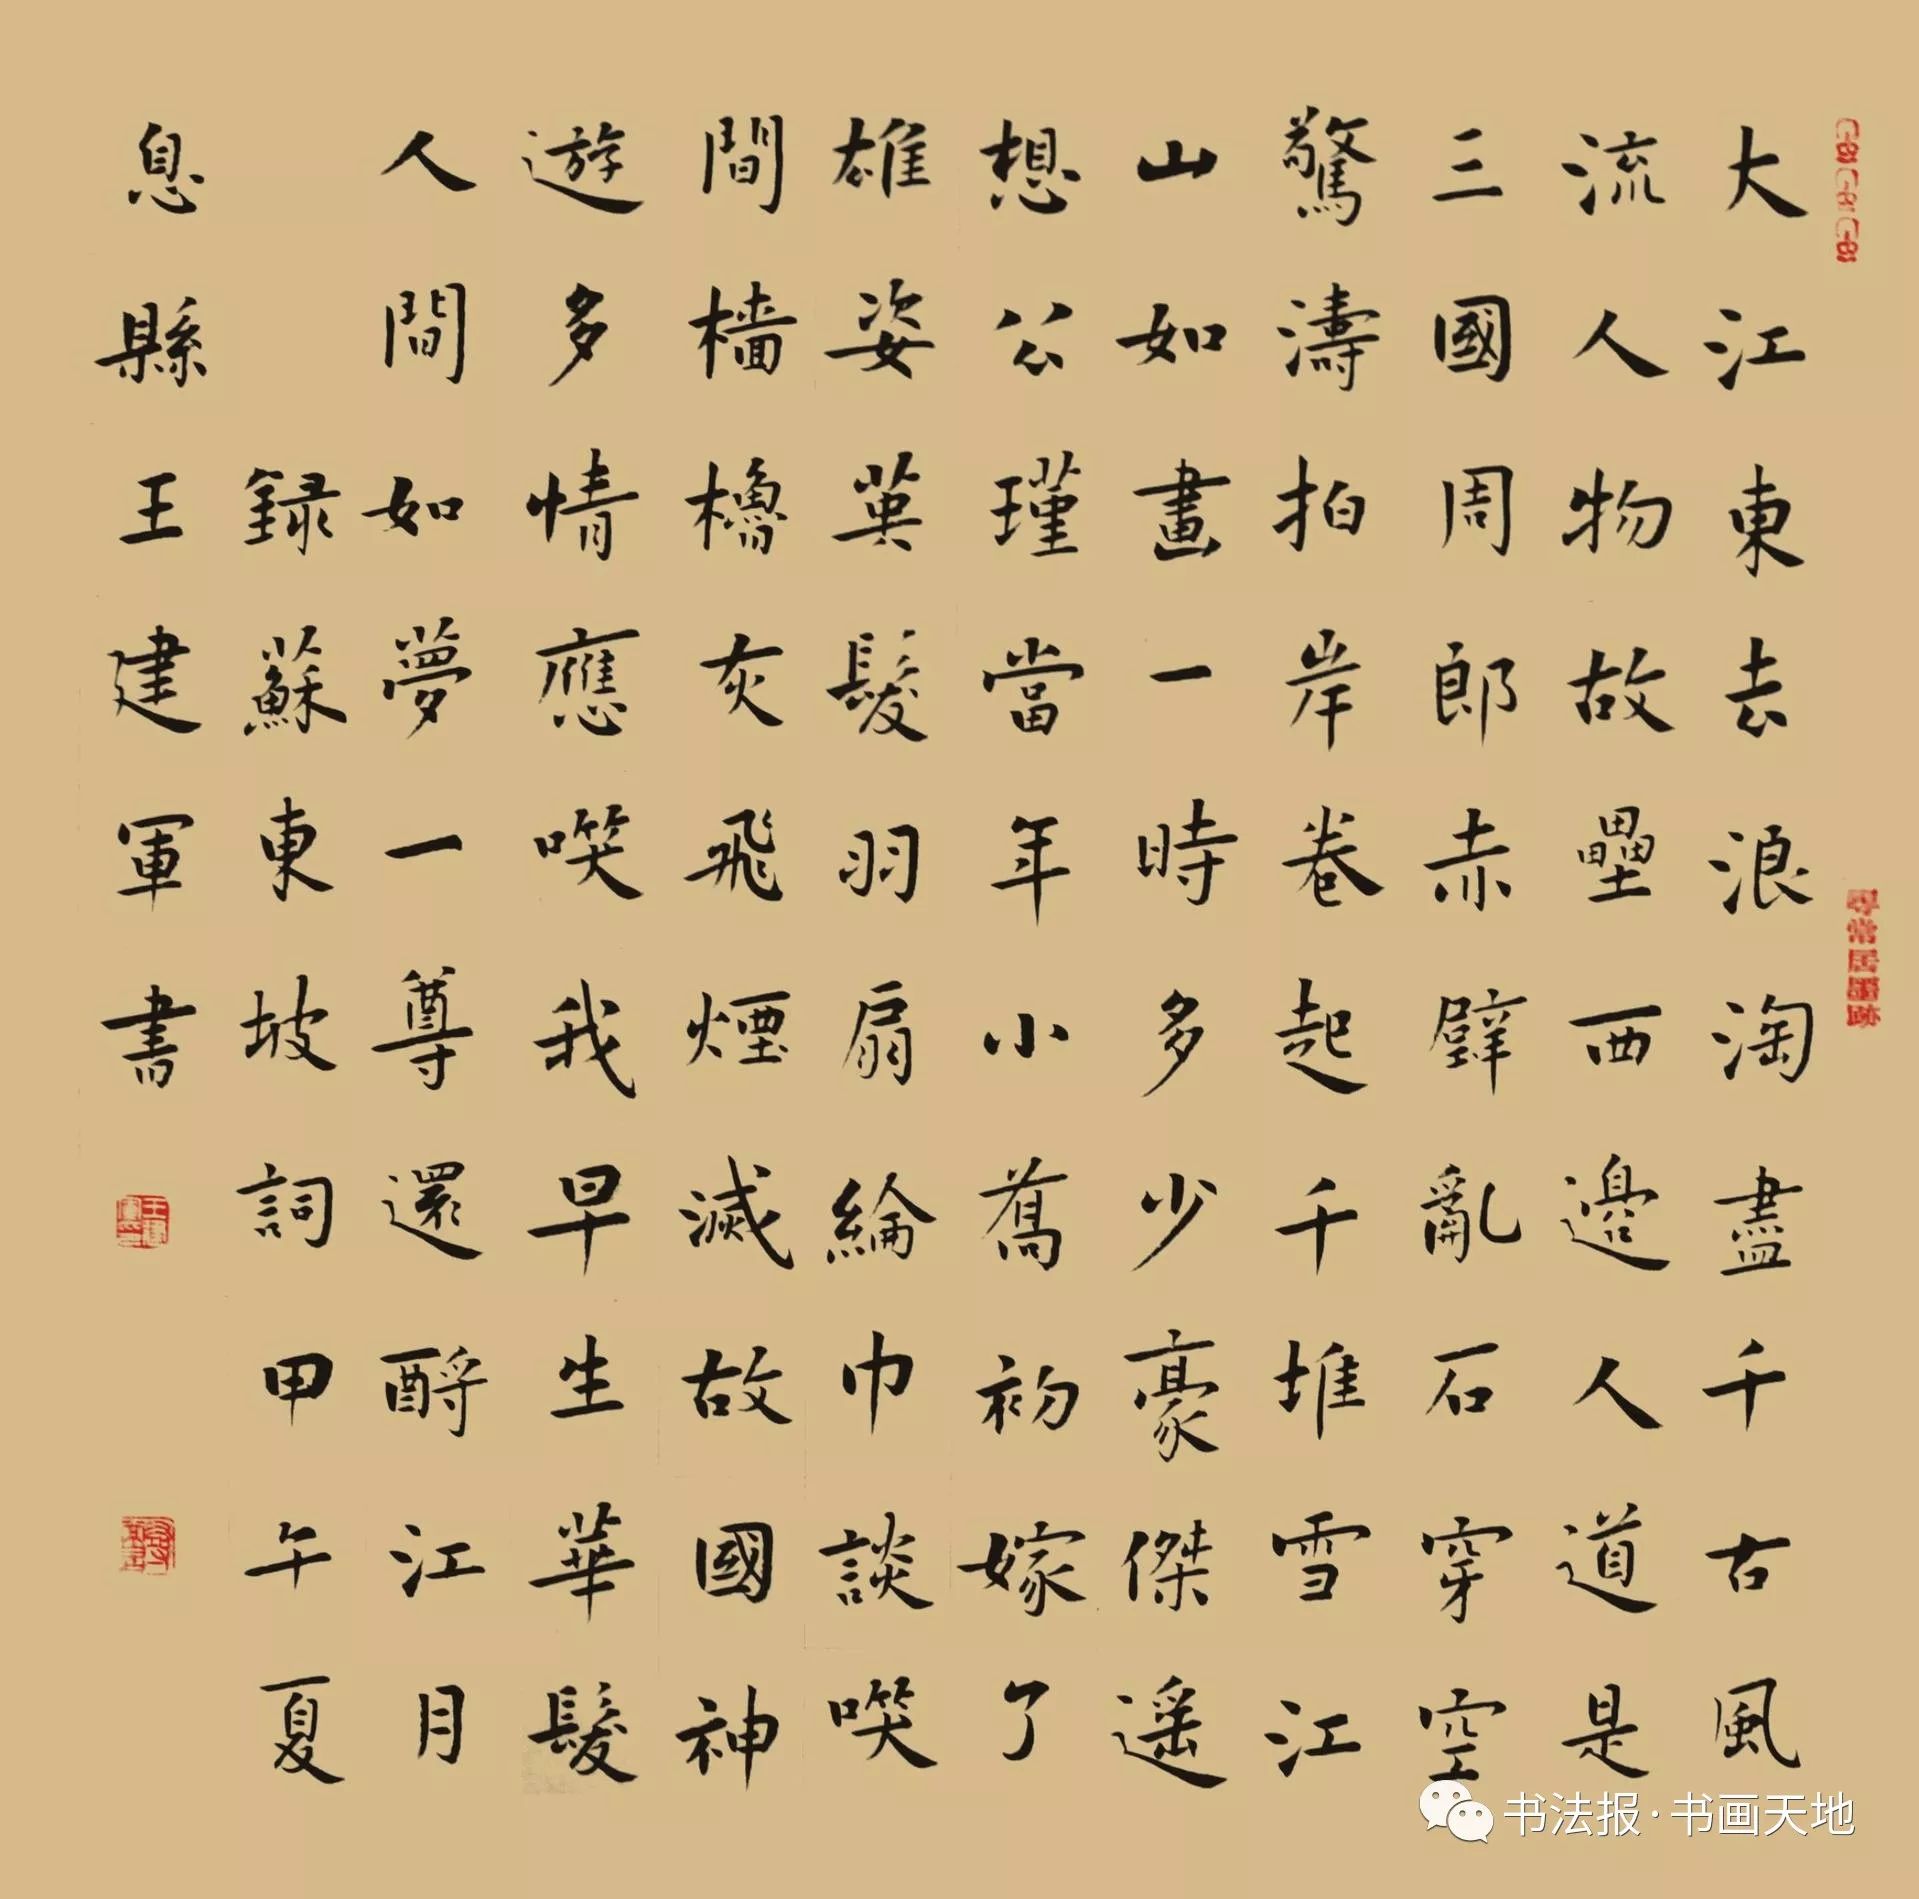 大江東去浪淘盡千古風
流人物故壘西邊人道是
三國周郎赤壁亂石穿空
驚濤拍岸卷起千堆雪江
山如畫一時多少豪傑遥
想公瑾當年小喬初嫁了
雄姿英髮羽扇綸巾談笑
間檣櫓灰飛煙滅故國神
遊多情應笑我早生華髮
人間如夢一尊還酹江月
録蘇東坡詞甲午夏
息縣王建軍書
尋常居墨跡
书法报·书画天地